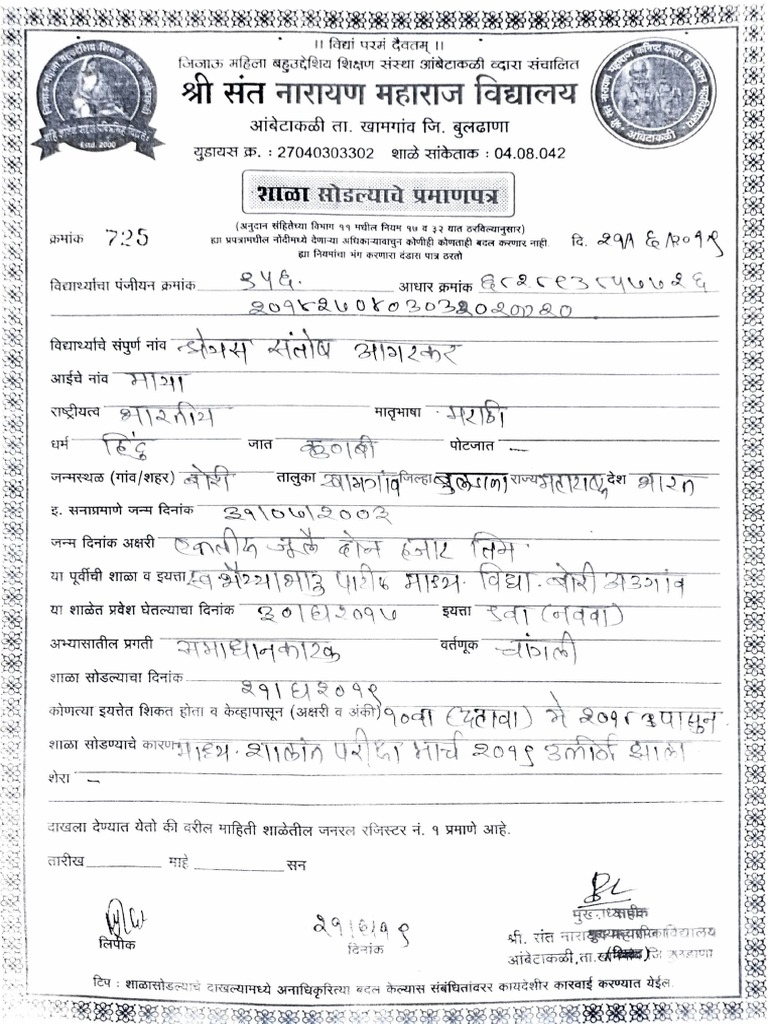 ।। विद्यां परमं दैवतम् ।।
जिजाऊ महिला बहुउद्देशिय शिक्षण संस्था आंबेटाकळी व्दारा संचालित
श्री संत नारायण महाराज विद्यालय
आंबेटाकळी ता. खामगांव जि. बुलढाणा
युडायस क्र. : 27040303302 शाळे सांकेताक : 04.08.042
शाळा सोडल्याचे प्रमाणपत्र
(अनुदान संहितेच्या विभाग ११ मधील नियम १७ व ३२ यात ठरविल्यानुसार)
क्रमांक 725 ह्या प्रपत्रामधील नोंदीमध्ये देणाऱ्या अधिकाऱ्यावाचुन कोणीही कोणताही बदल करणार नाही. दि. २१/६/२०१९
ह्या नियमांचा भंग करणारा दंडास पात्र ठरतो
विद्यार्थ्यांचा पंजीयन क्रमांक ९५६. आधार क्रमांक
विद्यार्थ्यांचे संपुर्ण नांव संतोष आगरकर
आईचे नांव माया
राष्ट्रीयत्व भारतीय मातृभाषा मराठी
धर्म हिंदु जात कुणबी पोटजात —
जन्मस्थळ (गांव/शहर) बोरी तालुका खामगांव जिल्हा बुलडाणा राज्य महाराष्ट्र देश भारत
इ. सनाप्रमाणे जन्म दिनांक ३१/०७/२००३
जन्म दिनांक अक्षरी एकतीस जुलै दोन हजार तिन
या पूर्वीची शाळा व इयत्ता पाटील माध्य. विद्या. बोरी अडगांव
या शाळेत प्रवेश घेतल्याचा दिनांक ३०/६/२०१७ इयत्ता ९वा (नववा)
अभ्यासातील प्रगती समाधानकारक वर्तणूक चांगली
शाळा सोडल्याचा दिनांक २१/६/२०१९
कोणत्या इयत्तेत शिकत होता व केव्हापासून (अक्षरी व अंकी) १०वा (दहावा) मे २०१८ पासुन.
शाळा सोडण्याचे कारण माध्य. शालांत परीक्षा मार्च २०१९ उत्तीर्ण झाला
शेरा —
दाखला देण्यात येतो की वरील माहिती शाळेतील जनरल रजिस्टर नं. १ प्रमाणे आहे.
तारीख माहे सन
लिपीक
२१/६/१९
दिनांक
श्री. संत
आंबेटाकळी, ता.
टिप : शाळासोडल्याचे दाखल्यामध्ये अनाधिकृरित्या बदल केल्यास संबंधितांवरर कायदेशीर कारवाई करण्यात येईल.